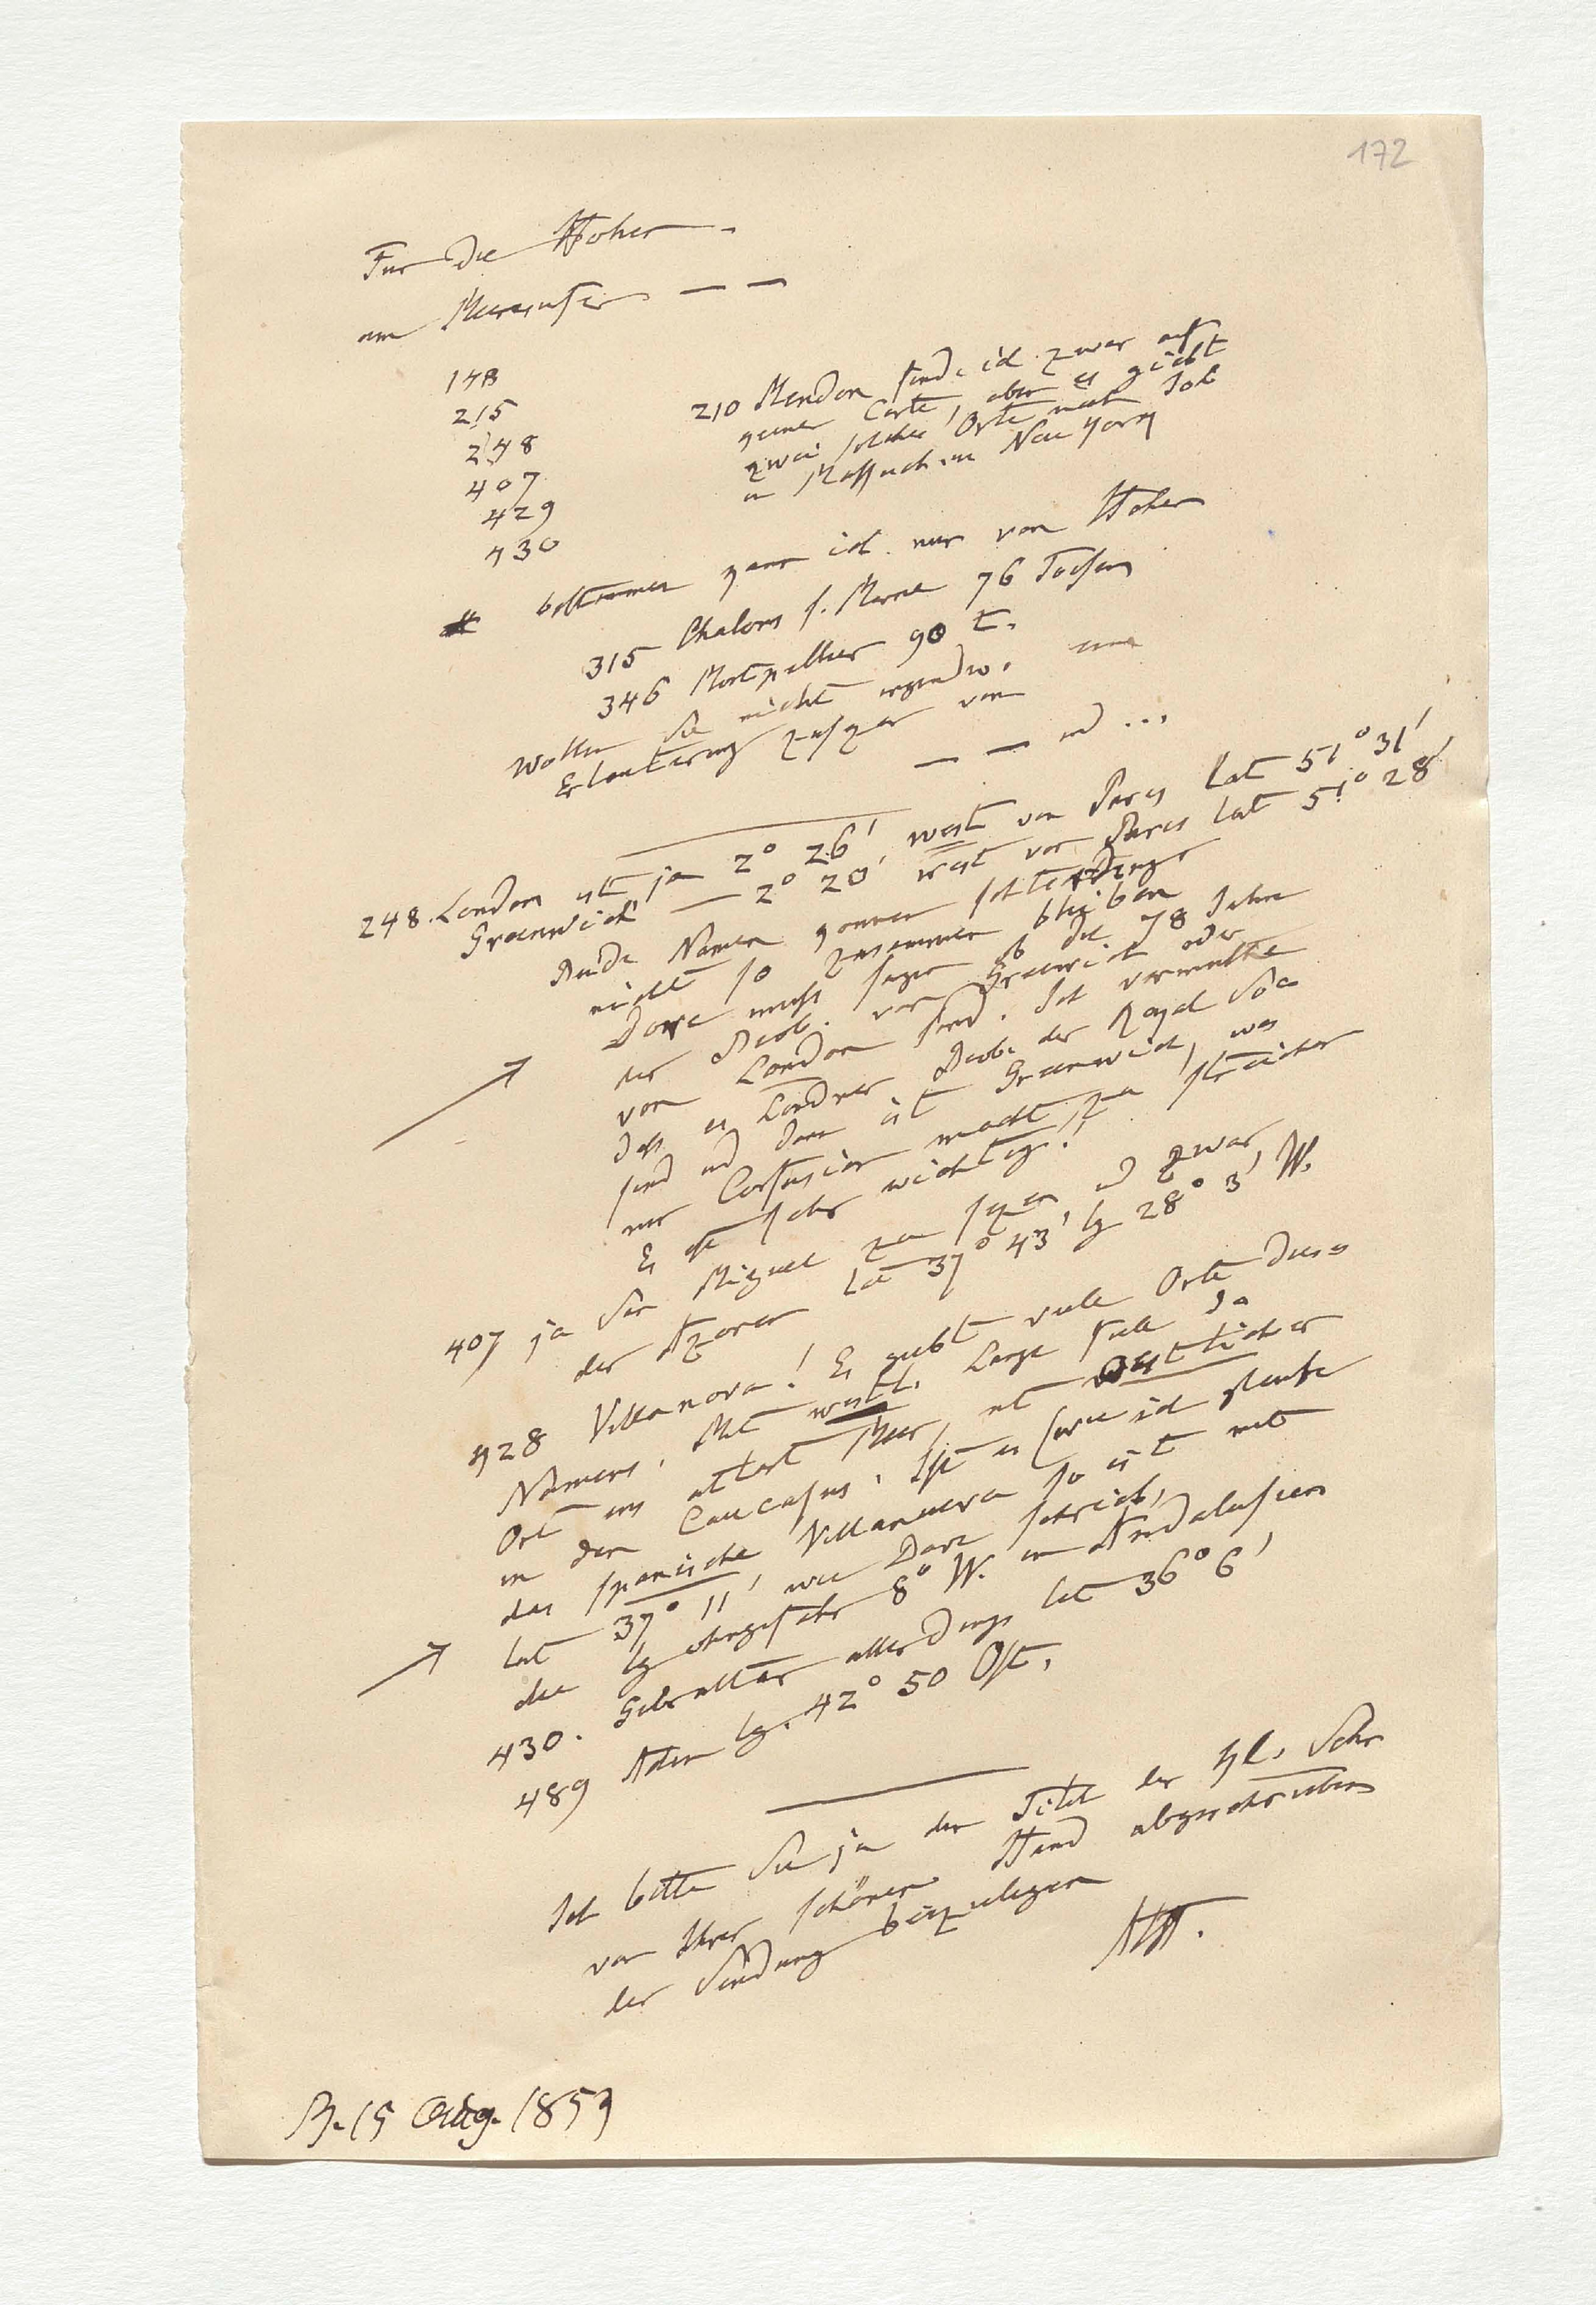 172
Für die Höhen
am Meeresufer — —
148
215
248
407
429
430
210 Mendon finde ich zwar auf
keiner Carte, aber es giebt
zwei solcher Orte nach
in Massach. in New York
bestimmen kann ich nur von Höhen
315 Chalons s. Marne 76 Toisen
346 Montpellier 90 t.
Wollen Sie nicht irgendwo eine
Erläuterung zusezen von
— — und ...
248. London ist ja 2° 26′ west von Paris Lat 51° 31′
Greenwich — 2° 20′ west von Paris lat 51° 28′
Beide Namen können schlechterdings
nicht so zusammen bleiben
Dove muss sagen ob die 78 Jahre
der Beob. von Greenwich oder
von London sind. Ich vermuthe
dass es Londner Beob. der Royal Soc
sind und dann ist Greenwich, was
nur Confusion macht zu streichen
Es ist sehr wichtig!
407 ja San Miguel zu sezen und zwar
der Azoren lat 37° 43′ lg 28° 3′ W.
428 Villanova! Es giebt viele Orte dieses
Namens. Mit westl. Länge fiele der
Ort ins atlant Meer, mit östlicher
in den Caucasus. Ist es (wie ich glaube
das spanische Villanueva so ist mit
lat 37° 11′ wie Dove schrieb,
die lg ohngefähr 8° W. in Andalusien
430. Gibraltar allerdings lat 36° 6′
489 Aden lg. 42° 50 Ost.
Ich bitte Sie ja den Titel der Kl. Schr
von Ihrer schönen Hand abgeschrieben
der Sendung beizulegen
AHt.
B. 15 Aug. 1853